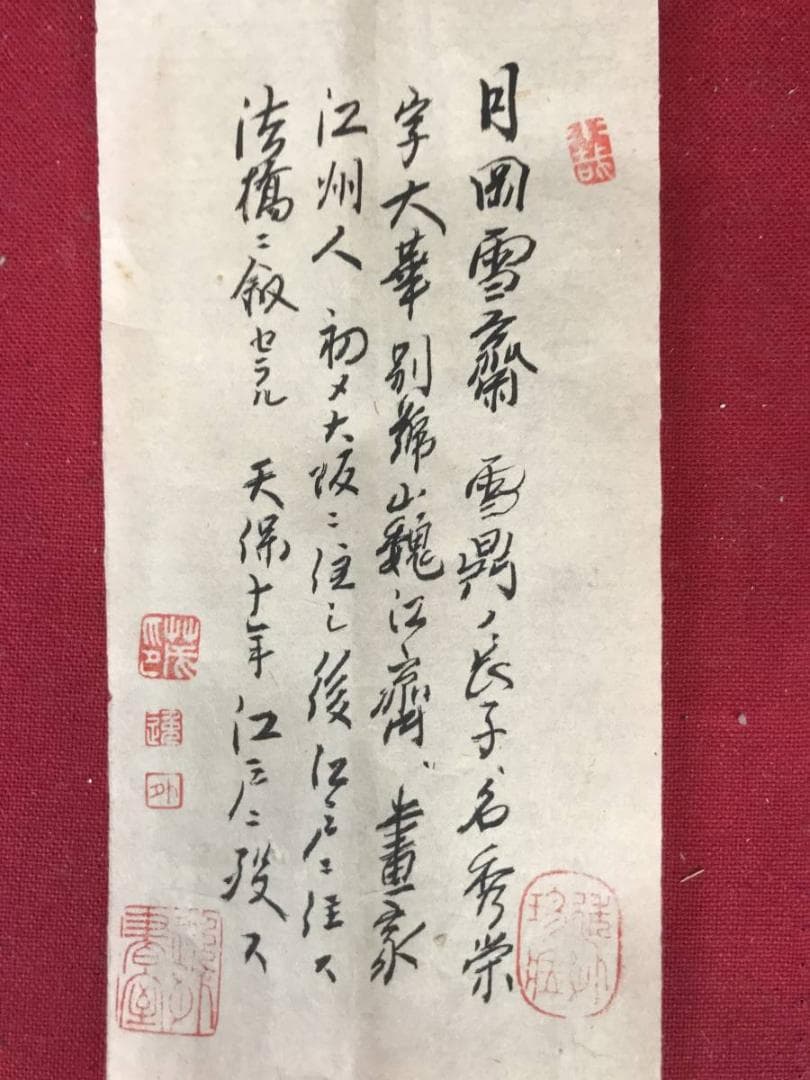 月岡雪齋 雪鼎ノ長子、名秀栄
字大華 別號山巍江齋、畫家
江州人 初メ大阪ニ住シ後江戸ニ住ス
法橋ニ叙セラル 天保十年 江戸ニ歿ス